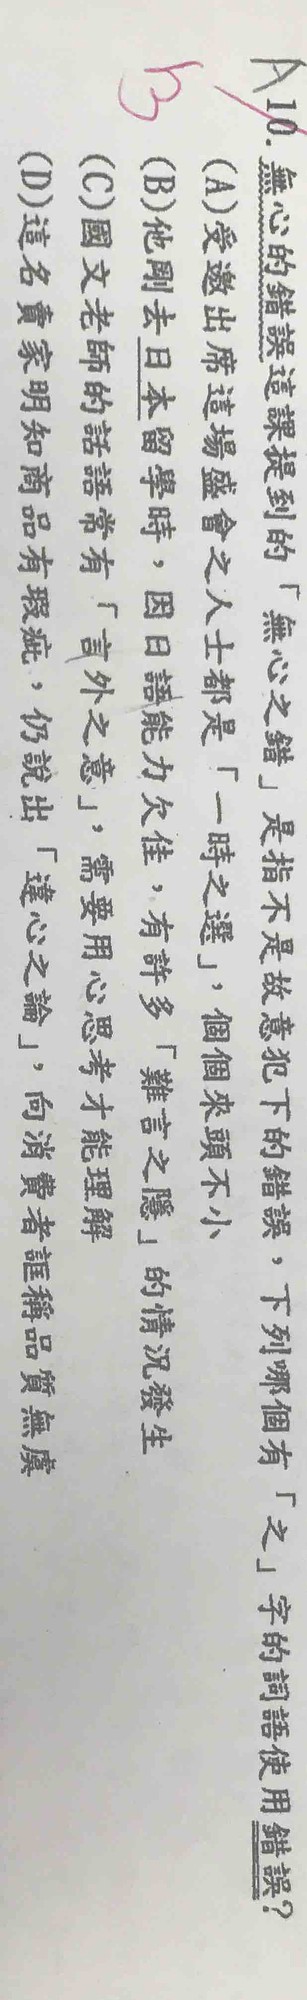 A 10. 無心的錯誤這課提到的「無心之錯」是指不是故意犯下的錯誤，下列哪個有「之」字的詞語使用錯誤？
(A)受邀出席這場盛會之人士都是「一時之選」，個個來頭不小
B
(B)他剛去日本留學時，因日語能力欠佳，有許多「難言之隱」的情況發生
(C)國文老師的話語常有「言外之意」，需要用心思考才能理解
(D)這名賣家明知商品有瑕疵，仍說出「違心之論」，向消費者誆稱品質無虞